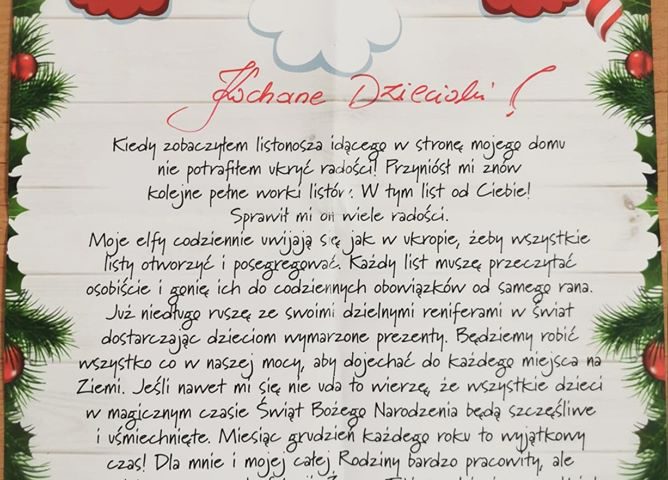 Kochane Dzieciaki!
Kiedy zobaczyłem listonosza idącego w stronę mojego domu
nie potrafiłem ukryć radości! Przyniósł mi znów
kolejne pełne worki listów. W tym list od Ciebie!
Sprawił mi on wiele radości.
Moje elfy codziennie uwijają się jak w ukropie, żeby wszystkie
listy otworzyć i posegregować. Każdy list muszę przeczytać
osobiście i gonię ich do codziennych obowiązków od samego rana.
Już niedługo ruszę ze swoimi dzielnymi reniferami w świat
dostarczając dzieciom wymarzone prezenty. Będziemy robić
wszystko co w naszej mocy, aby dojechać do każdego miejsca na
Ziemi. Jeśli nawet mi się nie uda to wierzę, że wszystkie dzieci
w magicznym czasie Świąt Bożego Narodzenia będą szczęśliwe
i uśmiechnięte. Miesiąc grudzień każdego roku to wyjątkowy
czas! Dla mnie i mojej całej Rodziny bardzo pracowity, ale